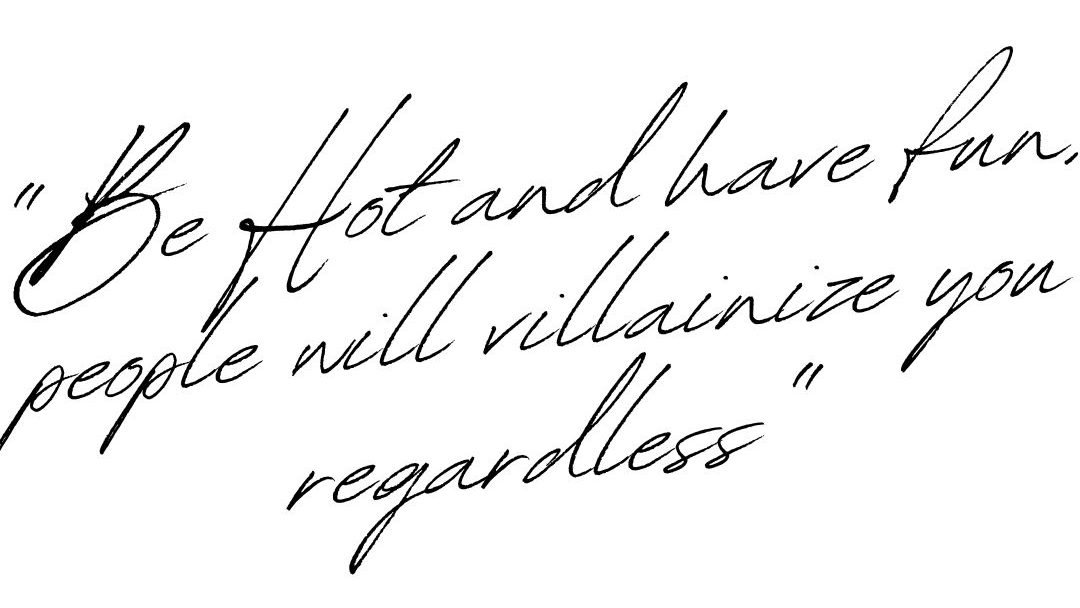 "Be Hot and have fun,
people will villainize you
regardless"